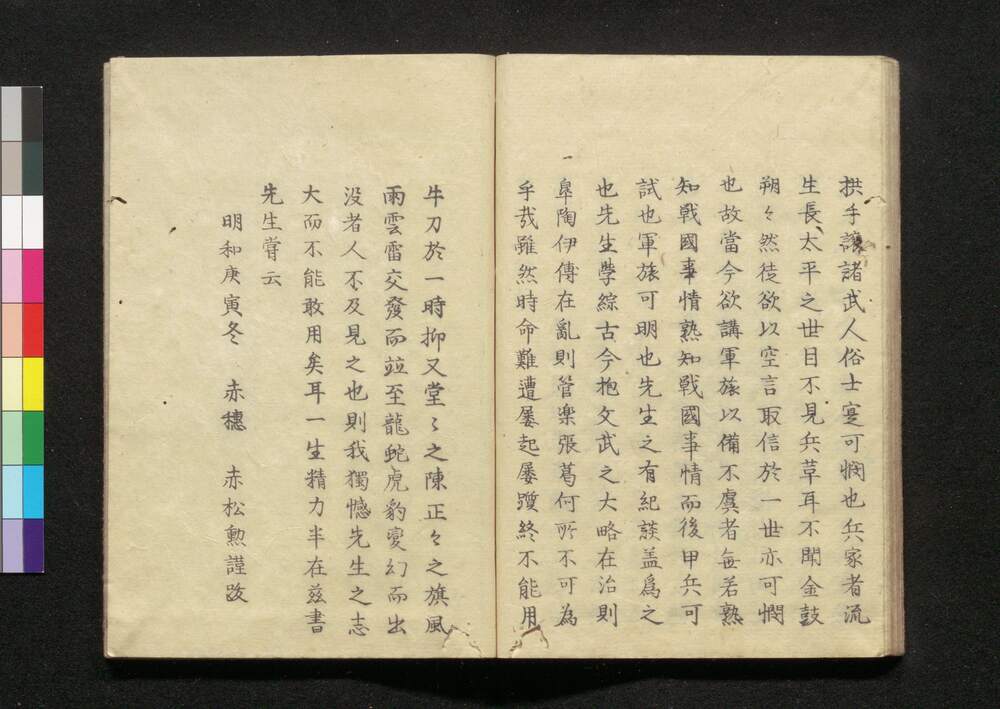 拱手讓諸武人俗士寔可憫也兵家者流
生長太平之世目不見兵革耳不聞金鼓
朔々然徒欲以空言取信於一世亦可憫
也故當今欲講軍旅以備不虞者毎若熟
知戰國事情熟知戰國事情而後甲兵可
試也軍旅可明也先生之有紀談盖爲之
也先生學綜古今抱文武之大略在治則
皐陶伊傳在亂則管楽張葛何所不可為
乎哉雖然時命難遭屡起屡躓終不能用
牛刀於一時抑又堂々之陳正々之旗風
雨雲雷交發而並至龍蛇虎豹變幻而出
没者人不及見之也則我獨憾先生之志
大而不能敢用矣耳一生精力半在茲書
先生嘗云
明和庚寅冬 赤穗 赤松勲謹跋